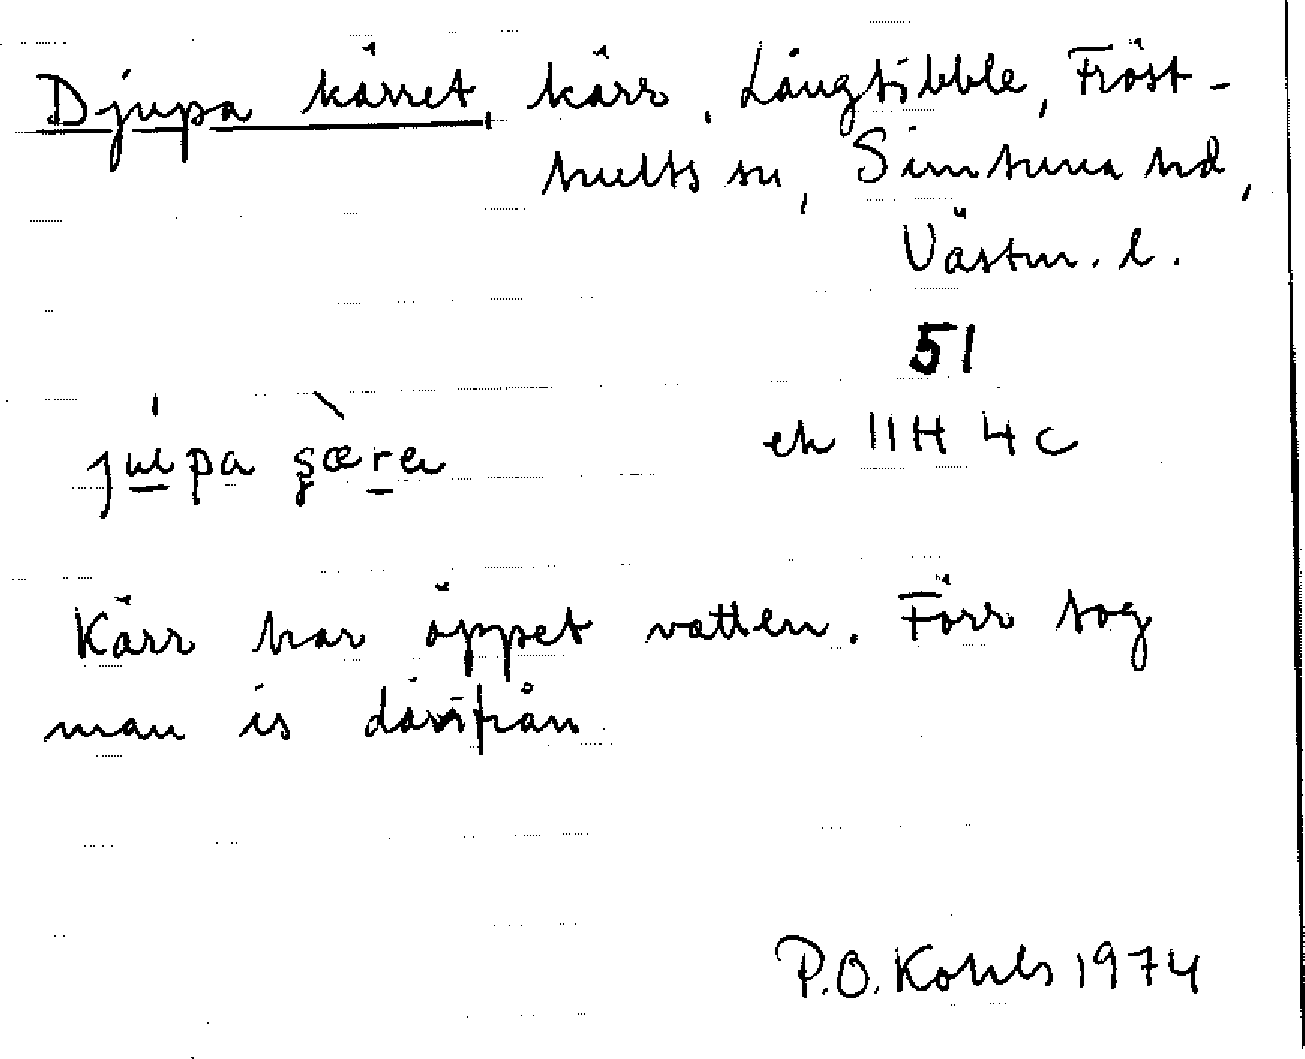 Djupa kärret, kärr, Långtibble, Fröst-
hults sn, Simtuna hd,
Västm. l.
51
ek 11H 4c
Kärr har öppet vatten. Förr tog
man is därifrån
P.O. Kohls 1974